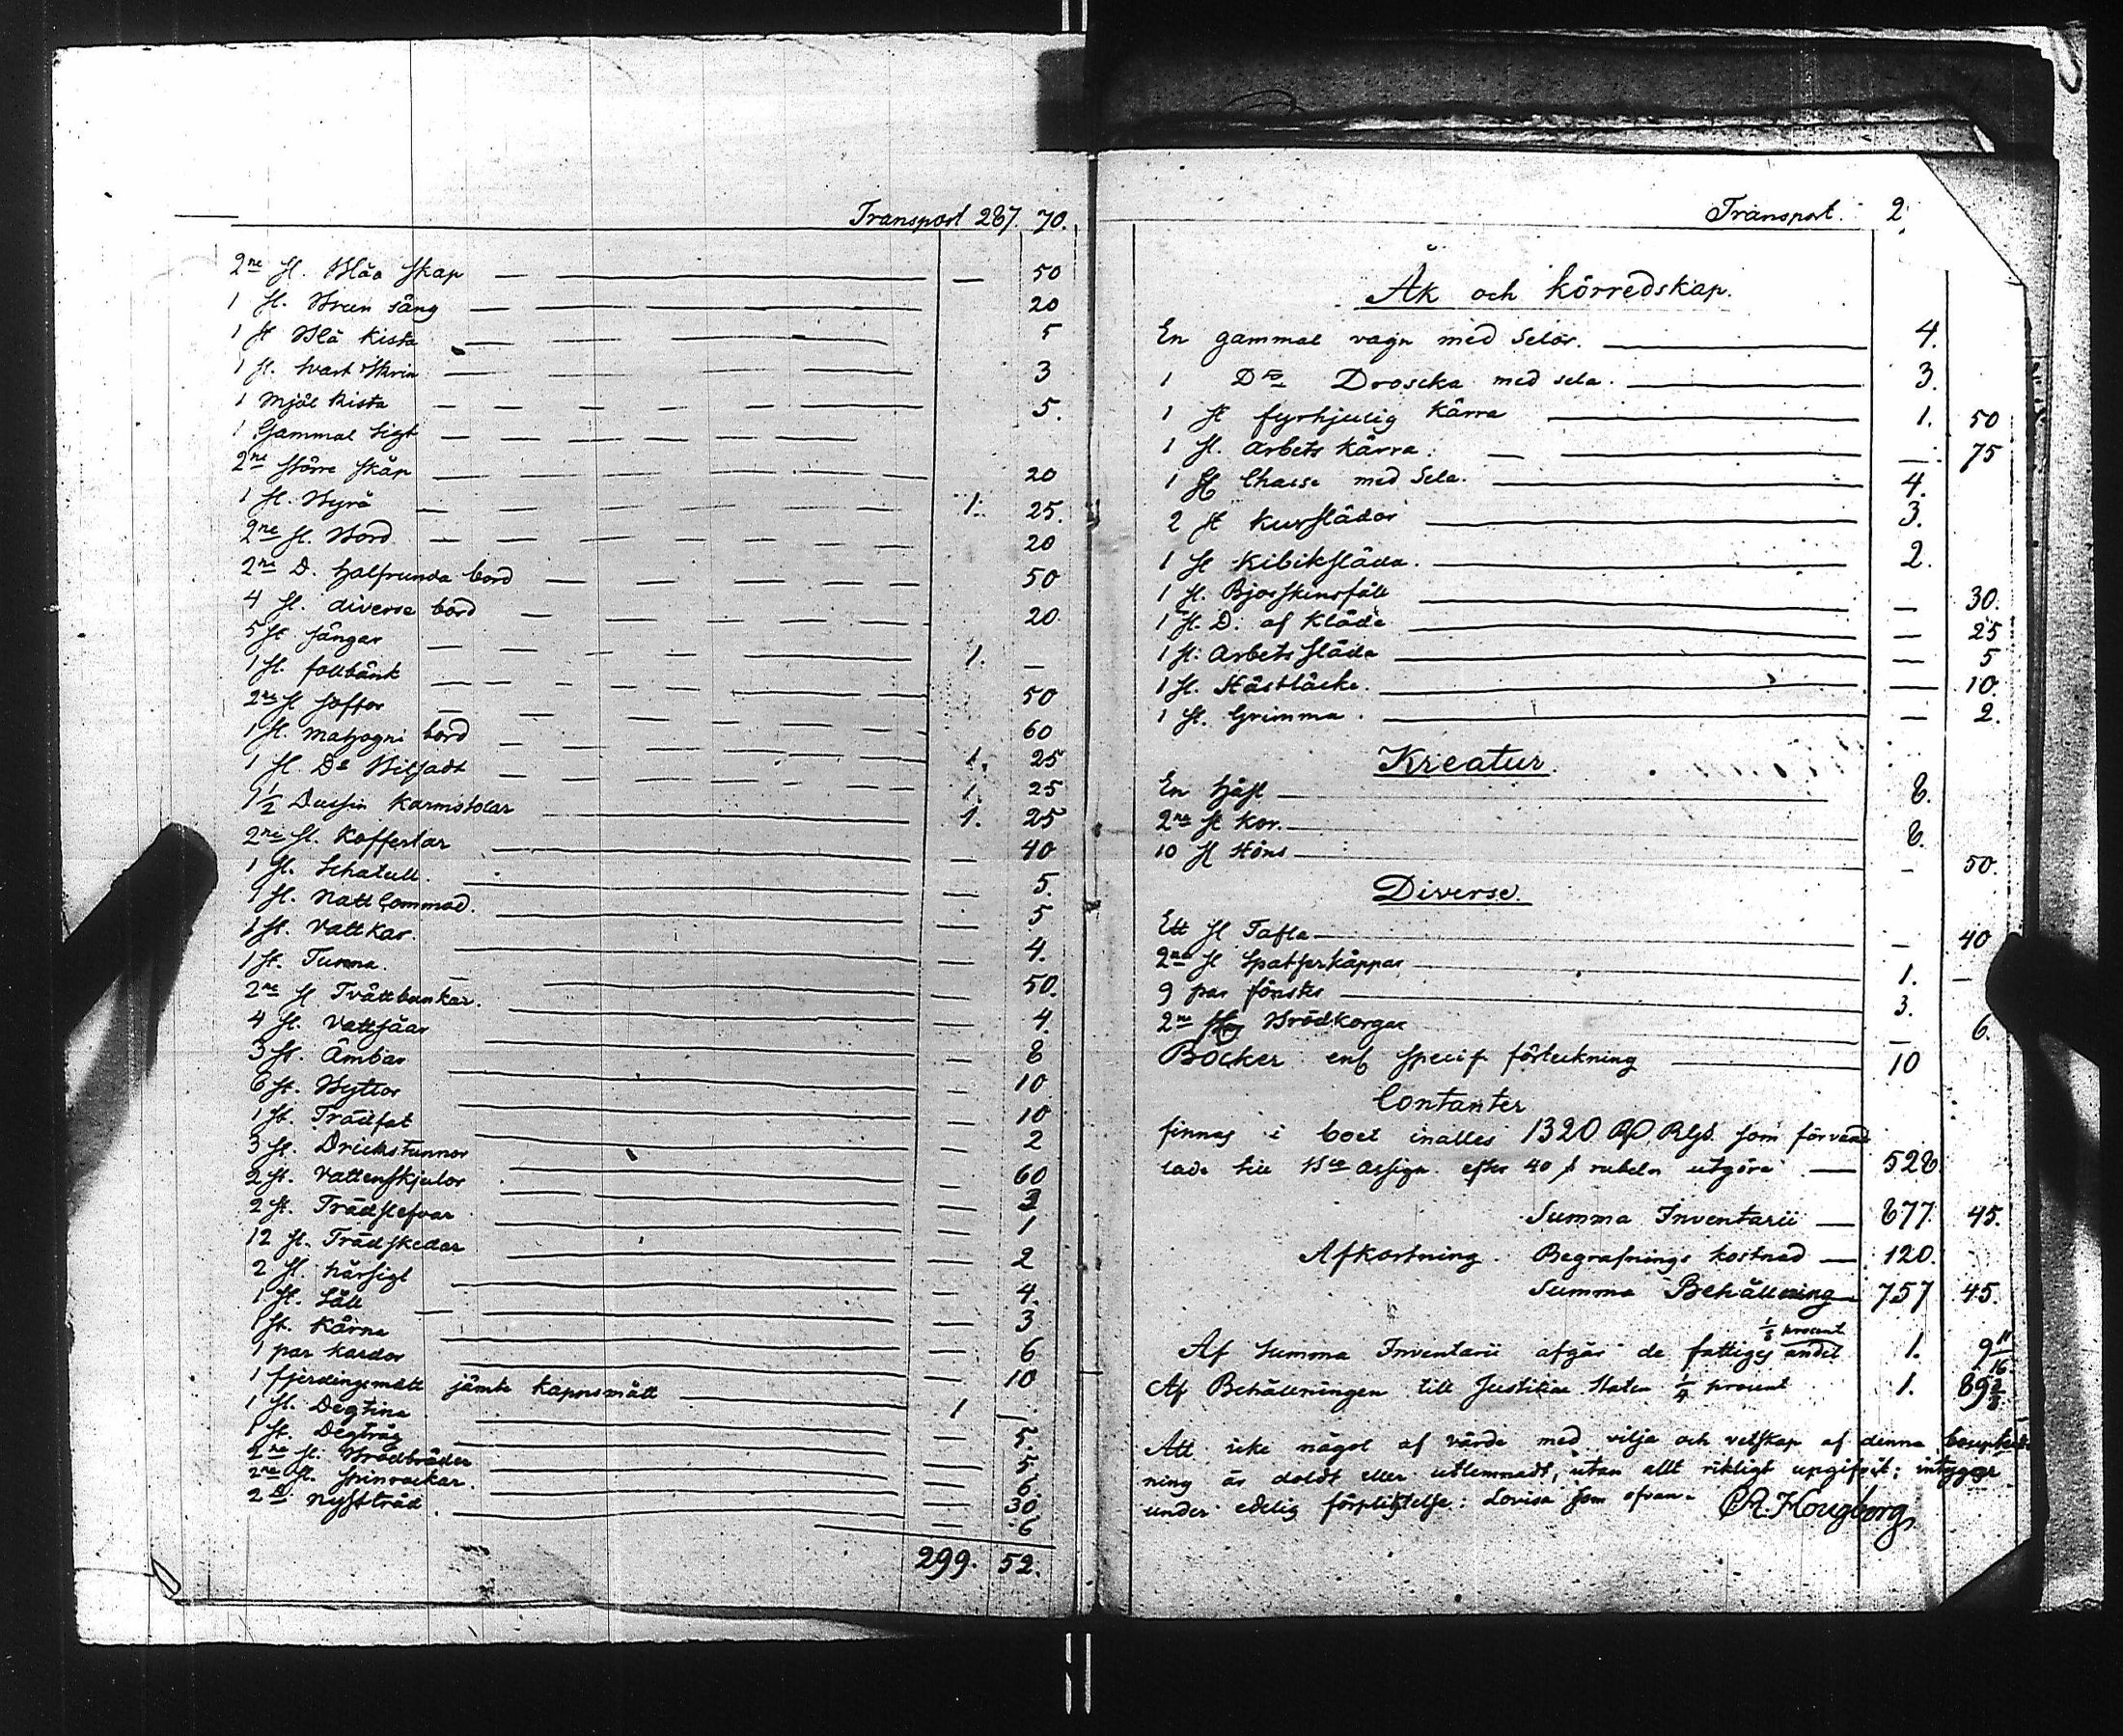 Transport 287. 70.
2ne st. Blåa skap — — 50
1 st. Brun säng — 20
1 st Blå Kista — 5
1 st. svart Skrin — 3
1 Mjöl Kista — 5.
1 Gammal Sigt —
2ne större skåp — 20
1 st. Byrå — 1. 25.
2ne st. Bord — 20
2ne D. halfrunda bord — 50
4 st. diverse bord — 20
5 st sängar — 1. —
1 st. sollbänk — 50
2ne st soffor — 60
1 st. mahogni bord — 1. 25
1 st. Do — 1. 25
1 1/2 Dussin Karmstolar — 1. 25
2ne st. Koffertar — — 40
1 st. Schatull. — — 5.
1 st. Natt Commod. — — 5
1 st. Vattkar. — — 4.
1 st. Tunna. — — 50.
2ne st Tvättbunkar. — — 4.
4 st. Vattsåar — — 8
3 st. Ämbar — — 10
6 st. Byttor — — 10
1 st. Trädfat — — 2
3 st. Drickstunnor — — 60
2 st. Vattenskjulor — — 3
2 st. Trädslefvar — — 1
12 st. Trädskedar — — 2
2 st. hårsigt — — 4.
1 st. Såll — — 3
1 st. Kärna — — 6
1 par Kardor — — 10
1 fjerdingsmått jämte Kapnsmått — 1 —
1 st. Degtina — — 5.
1 st. Degtråg — — 5
2ne st. Brödbräder — — 6.
2ne st. Spinrockar. — — 30
2 st nystträd. — — 6
299. 52.
Transport. 2
Åk och körredskap.
En gammal vagn med Selor. — 4.
1 Dto Droscka med sela. — 3.
1 st fyrhjulig Kärra — 1. 50
1 st. Arbets Kärra. — — 75
1 st Chaese med Sela. — 4.
2 st Kurslädor — 3.
1 st Kibiksläda. — 2.
1 st. Bjorskinsfäll — — 30.
1 st. D: af Kläde — — 25
1 st. Arbetssläda — — 5
1 st. Hästtäcke. — — 10.
1 st. Grimma. — — 2.
Kreatur.
En häst — 8.
2ne st Kor. — 8.
10 st Höns — - 50.
Diverse.
Ett st Tafla — - 40
2ne st Spatserkäppar — 1. —
9 par fönster — 3.
2ne st Brödkorgar — 6.
Böcker enl specif förteckning — 10
Contanter
finnas i boet inalles 1320 Rbl Rgs. som förvand
lade till Bco assign. efter 40 s rubeln utgöra — 528
Summa Inventarii — 877. 45.
Afkortning. Begrafnings kostnad — 120.
Summa Behållning — 757 45.
1/8 procent
Af Summa Inventarii afgår de fattiges andel 1. 9 11/16
Af Behållningen till Justitiae Staten 1/4 procent 1. 89 3/8
Att icke något af värde med vilja och vetskap af denna
ning är doldt eller utlemnadt, utan allt riktigt uppgifvit; intygar
under edelig förpliktelse: Lovisa som ofvan. Hougberg